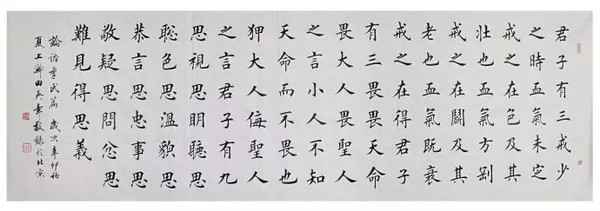 君子有三戒少
之時血氣未定
戒之在色及其
壯也血氣方剛
戒之在鬭及其
老也血氣既衰
戒之在得君子
有三畏畏天命
畏大人畏聖人
之言小人不知
天命而不畏也
狎大人侮聖人
之言君子有九
思視思明聽思
聰色思溫貌思
恭言思忠事思
敬疑思問忿思
難見得思義
論語季氏篇 歲次辛卯初
夏上澣田英章敬錄於北京